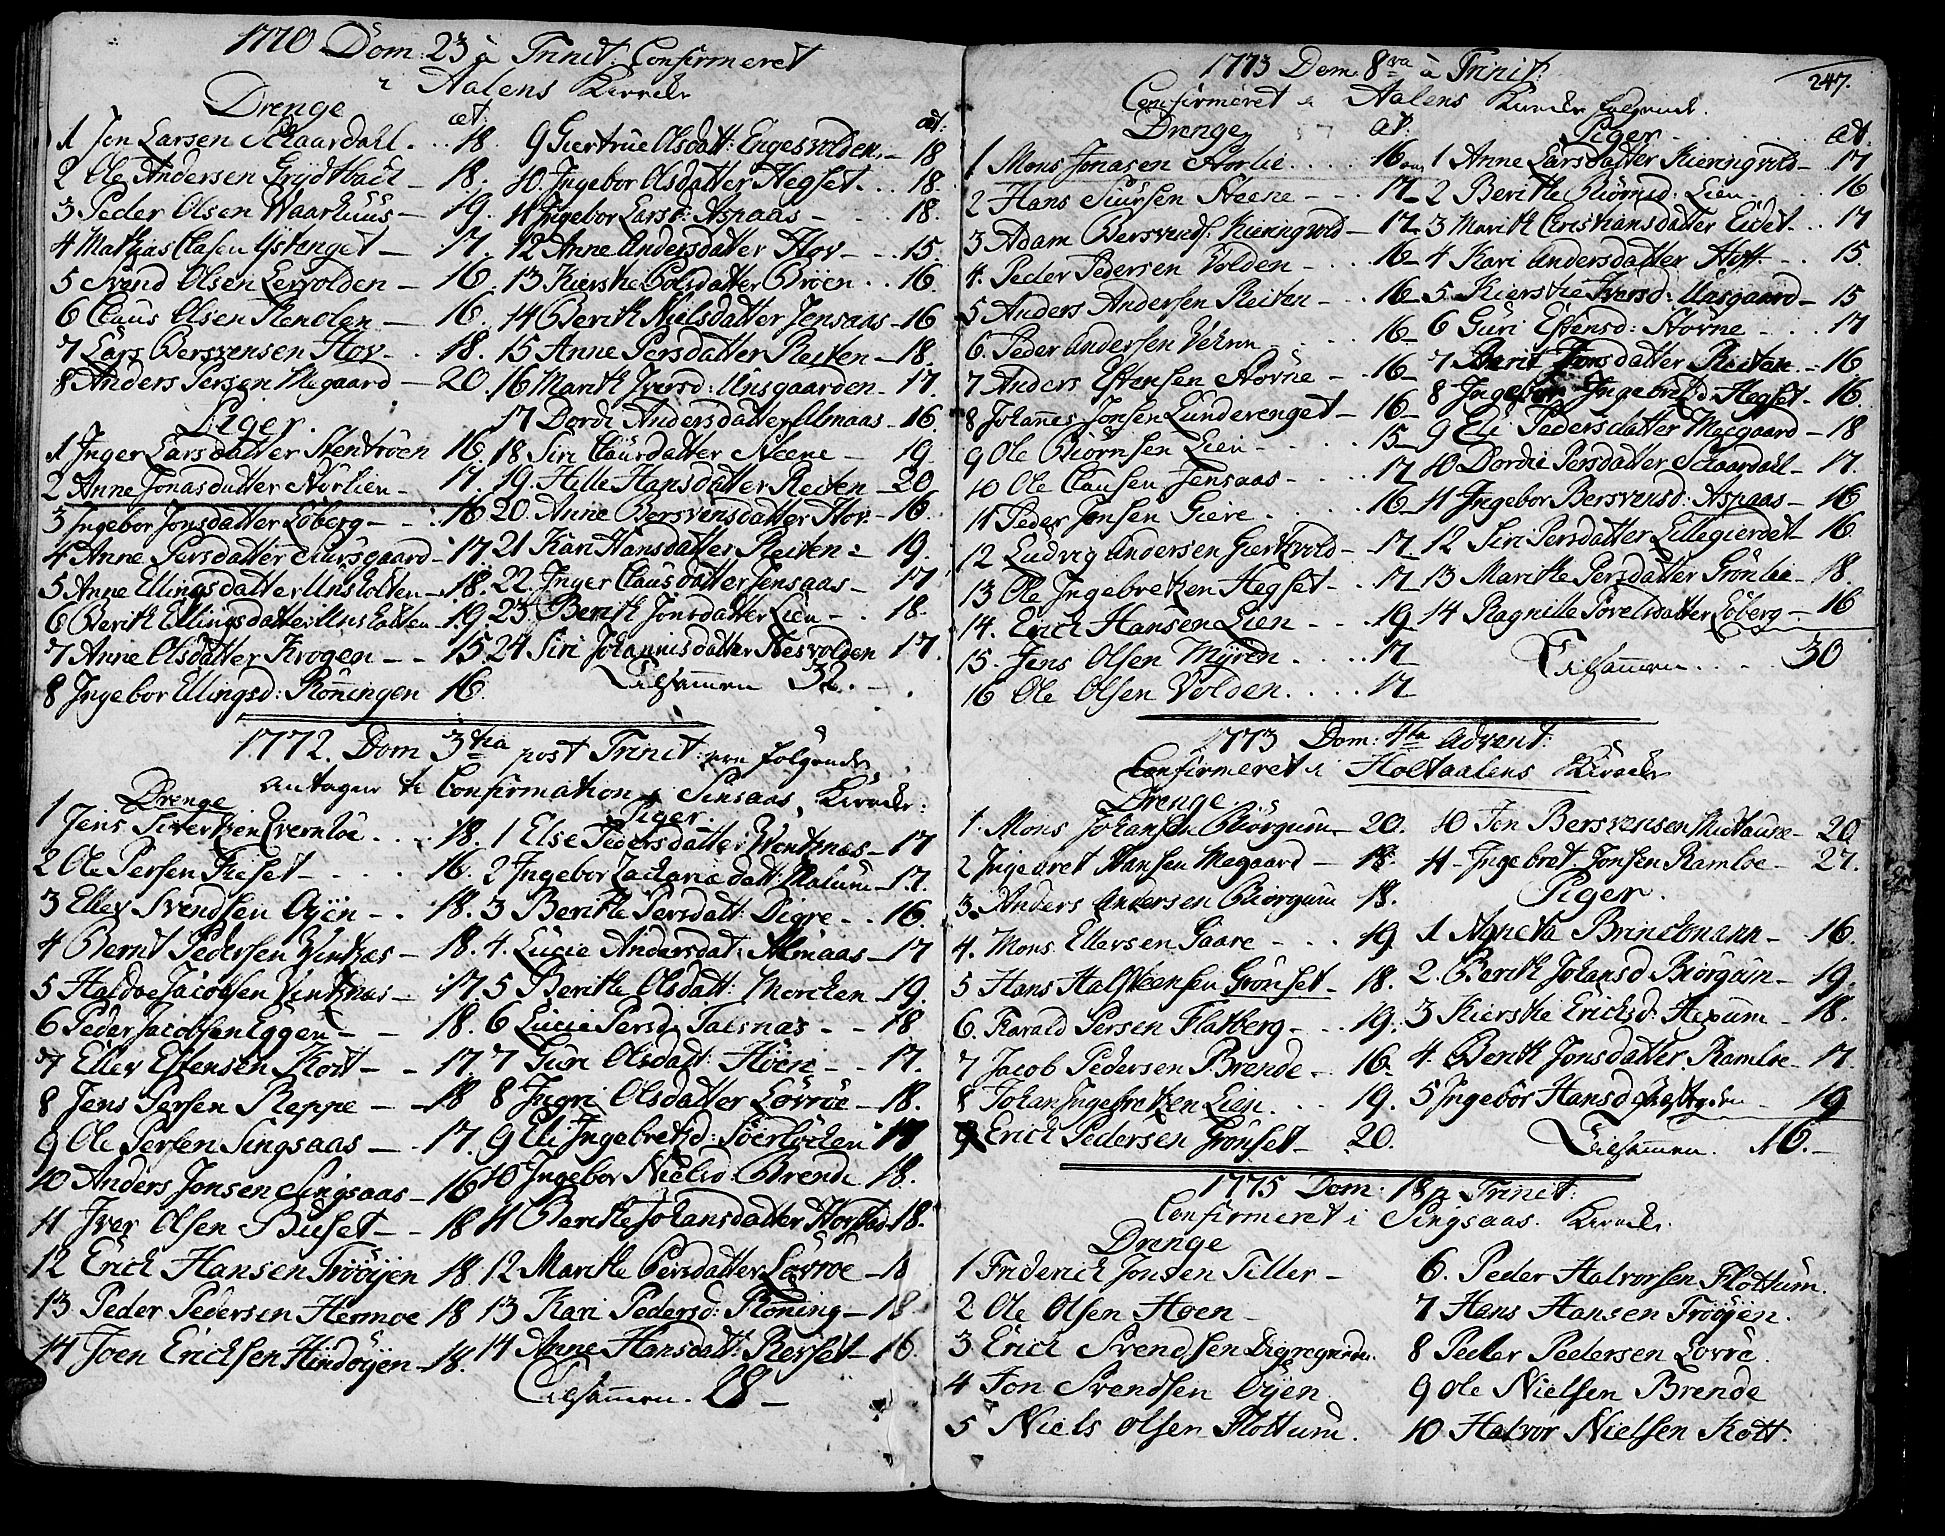 1770 Dom: 23 à Trinit: Confirmeret
i Aalens Kircke
Drenge æt:
1 Jon Larsen Schaardahl . . . 18.
2 Ole Andersen Grydtbach – 18.
3 Peder Olsen Waarhuus – 19.
4 Mathias Clasen Ystenget – 17.
5 Svend Olsen Lervolden – 16.
6 Claus Olsen Stenolen – 16.
7 Lars Bersvensen Hov – . 18.
8 Anders Persen Megaard – 20.
Piger.
1 Inger Larsdatter Stentröen 16.
2 Anne Jonasdatter Nörlien – 17.
3 Ingebor Jonsdatter Löberg – – 16
4 Anne Persdatter Siursgaard – 17.
5 Anne Ellingsdatter Unsholten – 18.
6 Berith Ellingsdatter Unsholten – 19.
7 Anne Olsdatter Krogen – – 15
8 Ingebor Ellingsd: Röningen 16.
æt:
9 Giertrue Olsdatt: Engesvolden – 18
10. Ingebor Olsdatter Hegset . . 18.
11 Ingebor Larsd: Aspaas – 18.
12 Anne Andersdatter Hov – . . 15.
13 Kierstie Colsdatter Bröen . . 16.
14 Berith Nielsdatter Jensaas – 16
15 Anne Persdatter Reiten – 18.
16 Marith Iversd: Unsgaarden – 17.
17 Dordi Andersdatter Almaas – 16.
18 Siri Clausdatter Steene – 19.
19. Helle Hansdatter Reiten – 20
20. Anne Bersvensdatter Hov – 16.
21 Kari Hansdatter Reiten – 19.
22. Inger Clausdatter Jensaas – 17
23. Berith Jonsdatter Lien – . 18.
24 Siri Johannisdatter Nesvolden 17.
Tilsammen 32.
1772. Dom 3tia post Trinit: ere fölgende
antagen til Confirmation i Sinsaas Kircke:
Drenge
1 Jens Sivertsen Evernböe . . . 18.
2 Ole Persen Kieset – . . . 16.
3 Ellev Svendsen Öyen – . 18.
4 Bernt Pedersen Wintnæs – 18.
5 Haldoe Jacobsen Wintnæs – 17.
6 Peder Jacobsen Eggen – – 18.
7 Ellev Estensen Kott – – 17.
8 Jens Persen Reppe – – 18
9 Ole Persen Singsaas – 17.
10 Anders Jonsen Singsaas – 16
11 Iver Olsen Buset – – 18
12 Erich Hansen Trööyen 18.
13. Peder Pedersen Hermoe 18
14 Joen Erichsen Hindöyen – 18.
Piger.
1 Else Pedersdatter Wintnæs – 17
2 Ingebor Zachariæ datt: Malum – 17.
3 Berithe Persdatt: Digre – . 16.
4. Lucie Andersdat: Almaas – 17
5 Berithe Olsdatt: Morchen – 19.
6 Lucie Persd: Talsnæs – – 18
7 Guri Olsdatt: Höen – – 17.
8 Ingri Olsdatter Lövröe – 18.
9 Eli Ingebretsd: Söerlöchen 17
10 Ingebor Nielsd Brende 18.
11 Berithe Johansdatter Horstad – 18.
12 Marithe Persdatter Lövröe – 18
13 Kari Pedersd: Röning – 18
14 Anne Hansdatt: Reiset – 16
Tilsammen. 28 –
247.
1773 Dom: 8va à Trinit:
Confirmeret i Aalens Kircke fölgende.
Drenge æt:
1 Mons Jonasen Norlie . . . 16
2 Hans Siursen Steene – – – 17
3 Adam Bersvends: Kieringvold – 17
4. Peder Pedersen Volden – . . 16
5 Anders Andersen Reiten – . . 16
6. Peder Andersen – . . 16
7 Anders Estensen Hovne – . 16
8 Johannes Jonsen Lunderenget – 16
9 Ole Biörnsen Lien – . . 15
10 Ole Clausen Jensaas – . . 17
11 Peder Jonsen Giere . . . 16
12 Ludvig Andersen Giertvold – 17
13 Ole Ingebretsen Hegset – . . 17
14. Erich Hansen Lien – – . 19
15. Jens Olsen Myren . . . . 17
16 Ole Olsen Volden . . . . 17
Piger æt.
1 Anne Larsdatter Kieringvold – 17
2 Berithe Biörnsd: Lien . . . 16
3 Marith Christiansdatter Eidet . . 17
4 Kari Andersdatter Hoff – . 15.
5. Kierstie Iversd: Unsgaard – 15
6 Guri Estensd: Hovne – . . 17
7 Barit Jonsdatter Reitan – 16.
8 Ingebor Ingebretsd: Hegset – 16.
9 Eli Pedersdatter Moegaard – 18
10 Dordie Persdatter Schaardahl – 17.
11 Ingebor Bersvensd: Aspaas – 16
12 Siri Persdatter Lillegierdet – 16.
13 Marithe Persdatter Grönlie – 18.
14 Ragnille Povelsdatter Löberg – 16
Tilsammen . . . 30
1773 Dom: 4ta Advent:
Confirmeret i Holtaalens Kircke
Drenge
1. Mons Johansen Biörgum – 20.
2 Ingebret Hansen Megaard – 18.
3. Anders Andersen Biörgum 18.
4. Mons Ellevsen Gaare – . . 19
5 Hans Halsteensen Grönset – 18.
6. Harald Persen Flatberg – . . 19.
7 Jacob Pedersen Brende – . 16
8 Johan Ingebretsen Lien . . . 19.
9 Erich Pedersen Grönset – 20.
10 Jon Bersvensen – 20
11 – Ingebret Jonsen Ramloe – 27.
Piger.
1 Agneta Brinckmann – 16.
2. Berith Johansd Biörgum – 19.
3 Kierstie Ericksd: Hexum – 18.
4. Berith Jonsdatter Ramloe – 17.
5 Ingebor Hansd – 19
Tilsammen. 16. –
1775 Dom: 18 p Trinit:
Confirmeret i Singsaas Kircke.
Drenge
1 Friderich Jonsen Tiller –
2. Ole Olsen Hoen –
3 Erich Svendsen Digregrunden
4 Jon Svendsen Öyen
5 Niels Olsen Flottum.
6. Peder Halvorsen Flottum.
7 Hans Hansen Tröyen.
8 Peder Pedersen Lovrö.
9 Ole Nielsen Brende
10 Halvor Nielsen Kott.